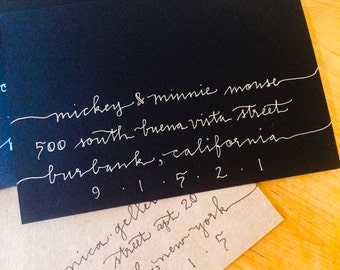 mickey & minnie mouse
500 south buena vista street
burbank, california
9 · 1 · 5 · 2 · 1
street apt 20
new york